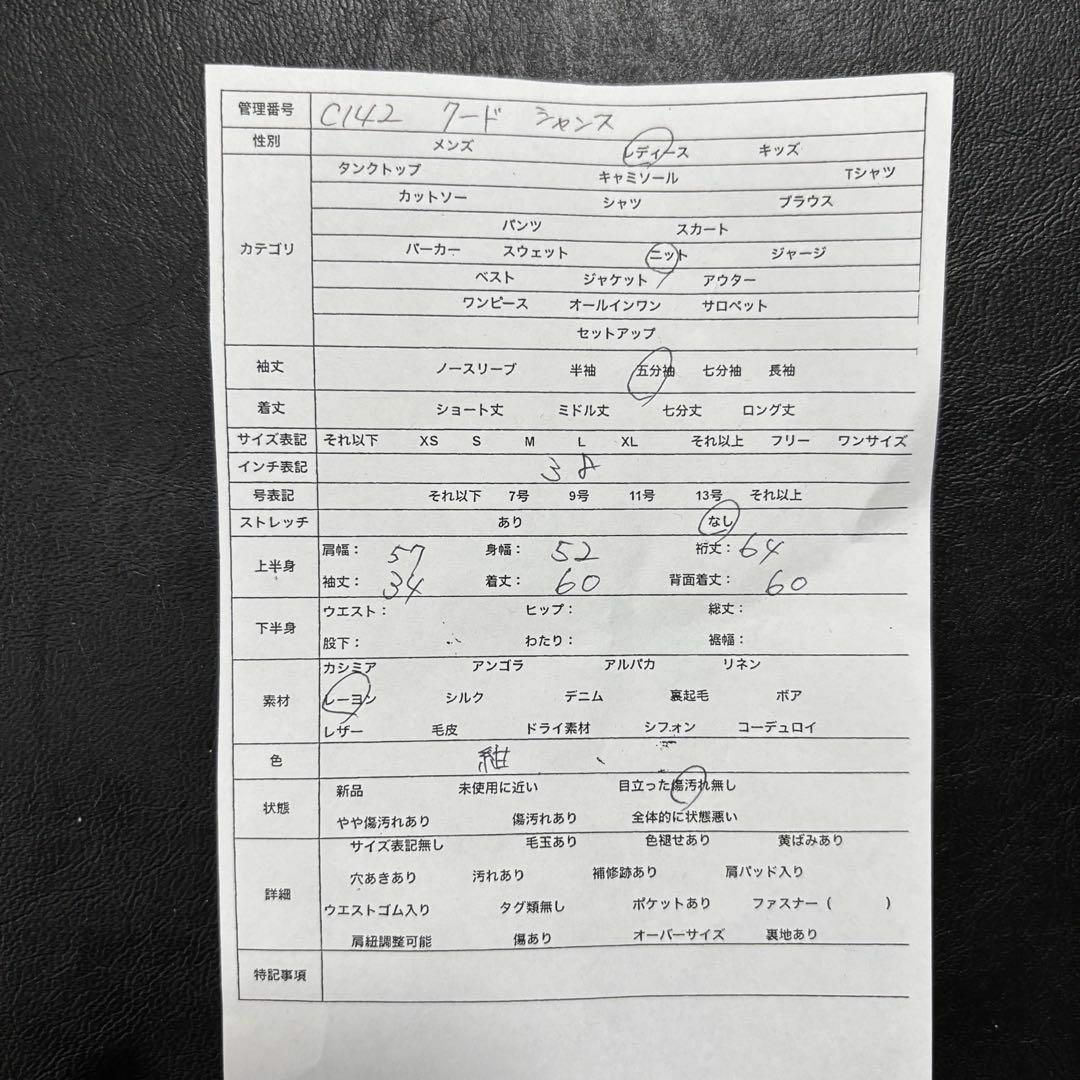 管理番号 C142 クード シャンス
性別 メンズ レディース キッズ
タンクトップ キャミソール Tシャツ
カットソー シャツ ブラウス
パンツ スカート
カテゴリ パーカー スウェット ニット ジャージ
ベスト ジャケット アウター
ワンピース オールインワン サロペット
セットアップ
袖丈 ノースリーブ 半袖 五分袖 七分袖 長袖
着丈 ショート丈 ミドル丈 七分丈 ロング丈
サイズ表記 それ以下 XS S M L XL それ以上 フリー ワンサイズ
インチ表記 38
号表記 それ以下 7号 9号 11号 13号 それ以上
ストレッチ あり なし
上半身 肩幅: 57 身幅: 52 裄丈: 64
袖丈: 34 着丈: 60 背面着丈: 60
下半身 ウエスト: ヒップ: 総丈:
股下: わたり: 裾幅:
カシミア アンゴラ アルパカ リネン
素材 レーヨン シルク デニム 裏起毛 ボア
レザー 毛皮 ドライ素材 シフォン コーデュロイ
色 紺
状態 新品 未使用に近い 目立った傷汚れ無し
やや傷汚れあり 傷汚れあり 全体的に状態悪い
サイズ表記無し 毛玉あり 色褪せあり 黄ばみあり
詳細 穴あきあり 汚れあり 補修跡あり 肩パッド入り
ウエストゴム入り タグ類無し ポケットあり ファスナー( )
肩紐調整可能 傷あり オーバーサイズ 裏地あり
特記事項